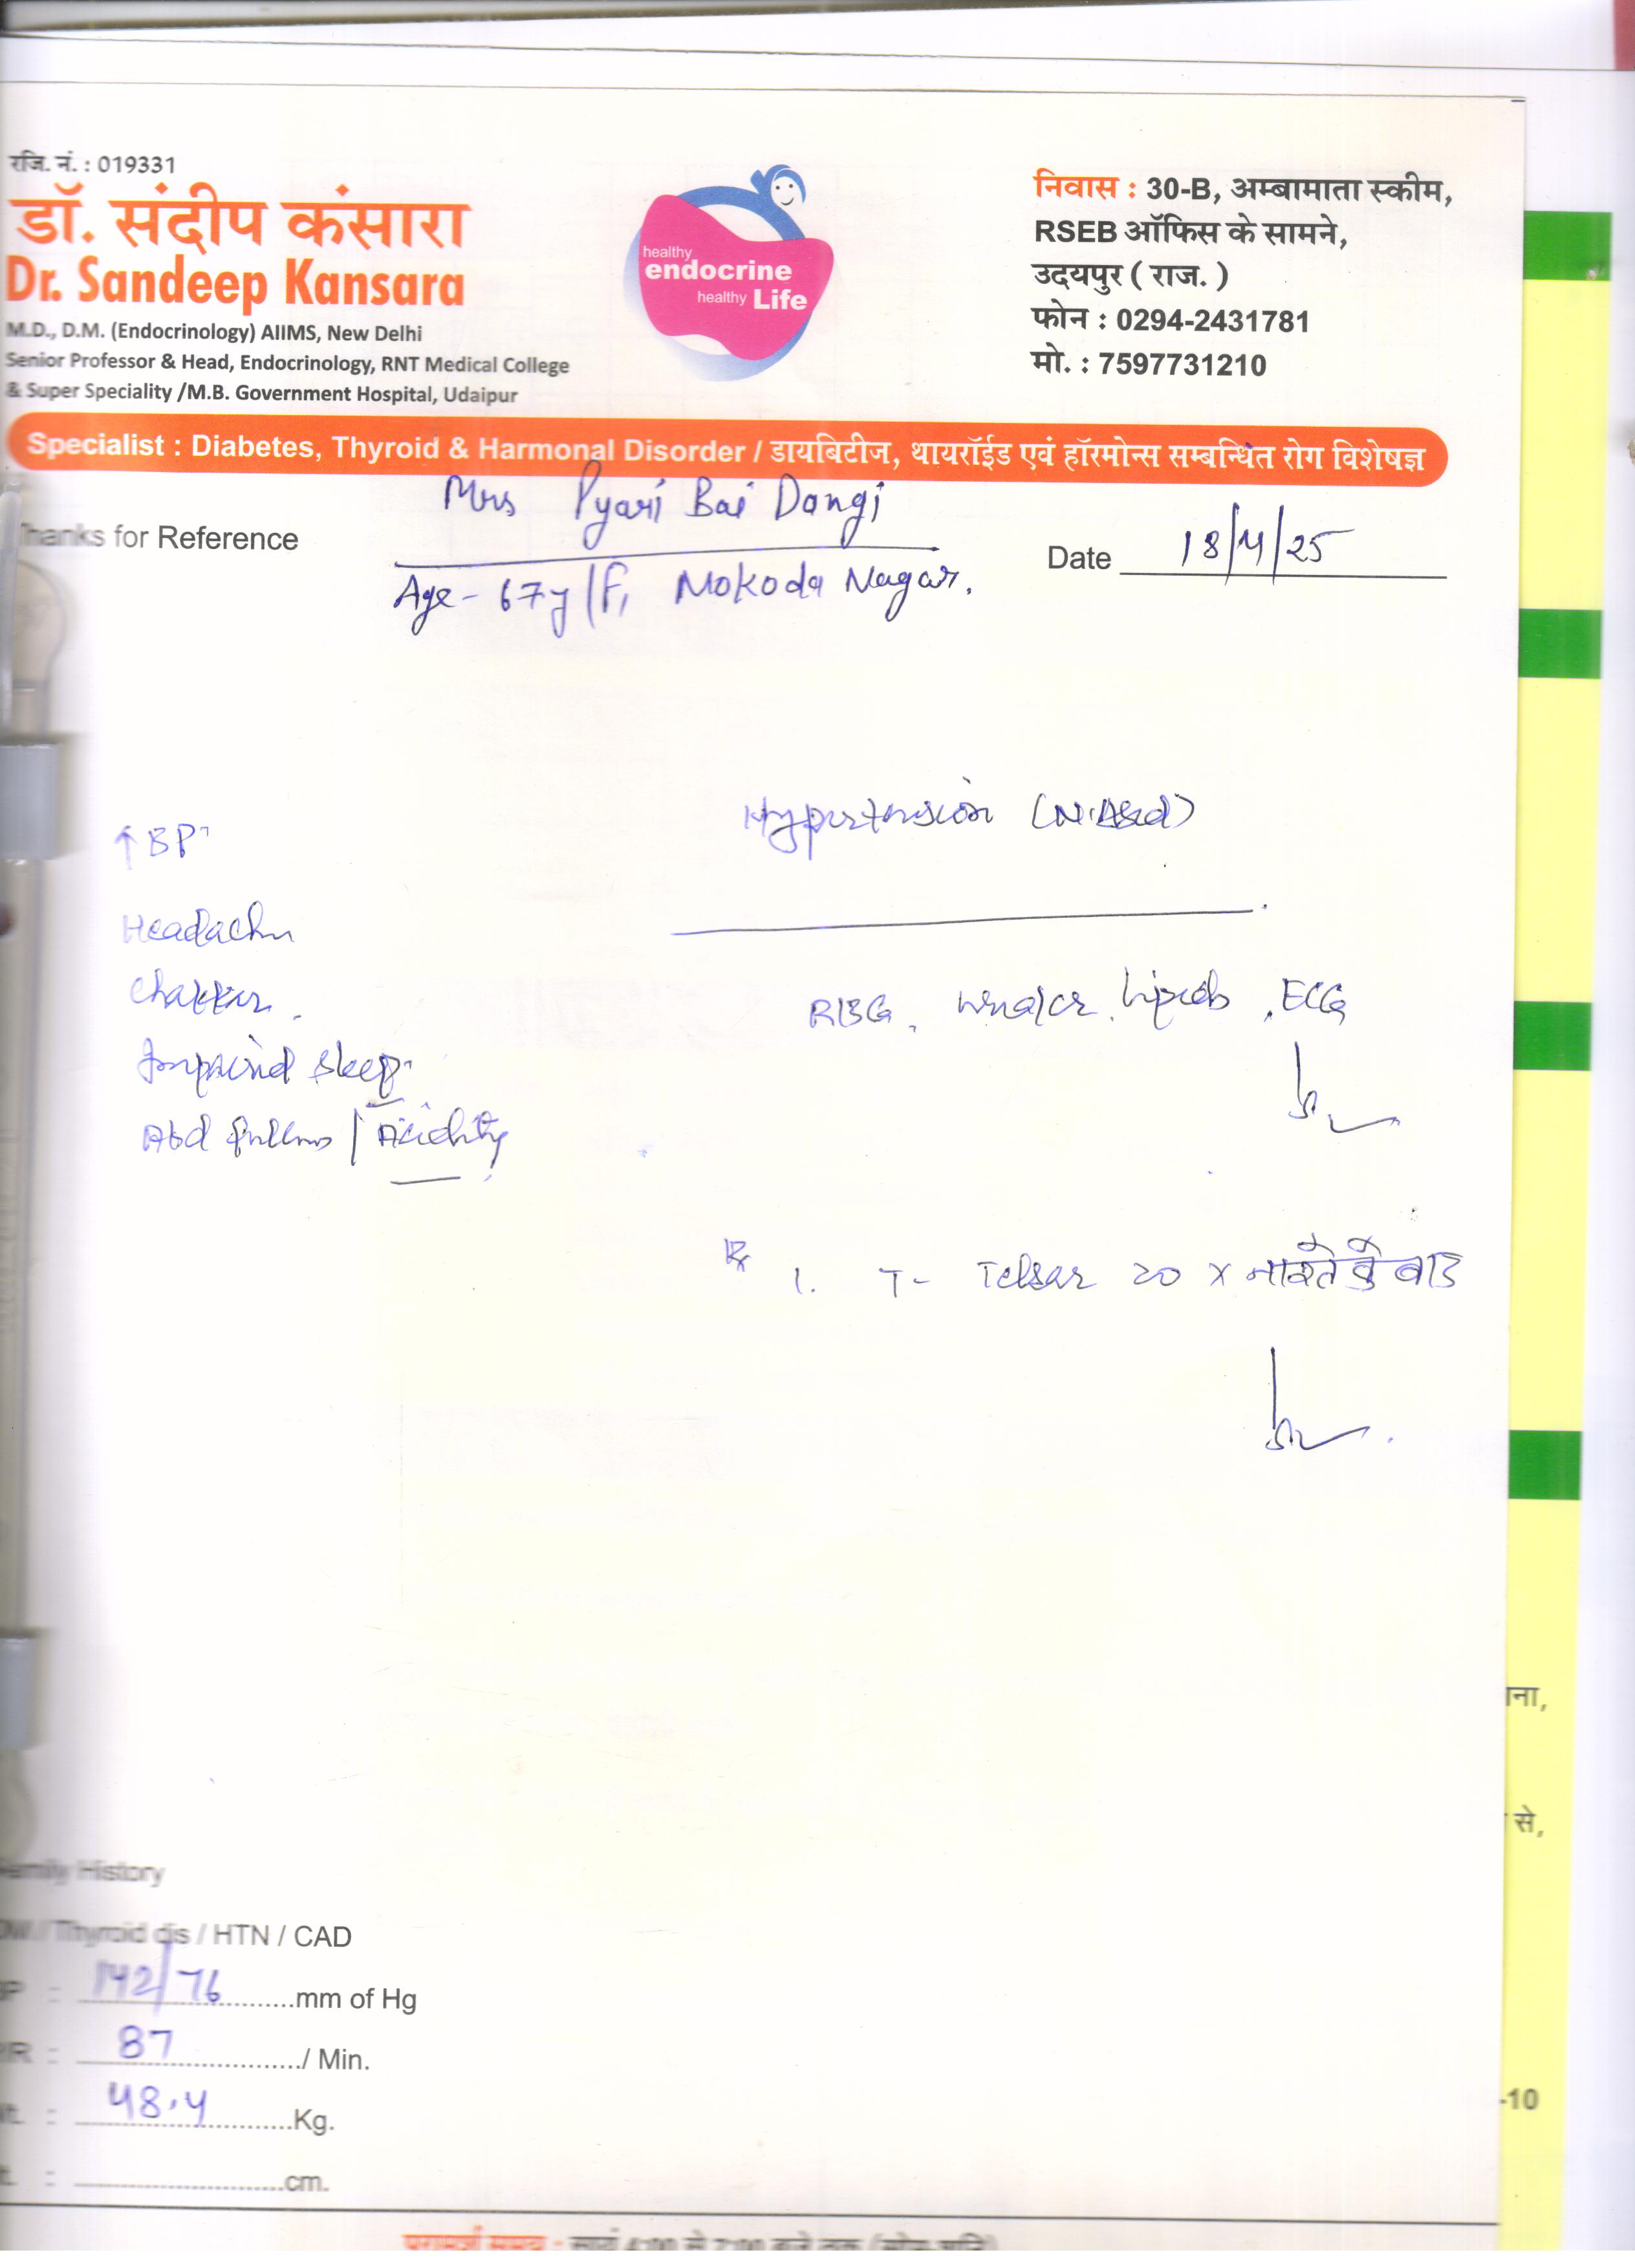 रजि. नं. : 019331
डॉ. संदीप कंसारा
Dr. Sandeep Kansara
M.D., D.M. (Endocrinology) AIIMS, New Delhi
Senior Professor & Head, Endocrinology, RNT Medical College
& Super Speciality /M.B. Government Hospital, Udaipur
healthy
endocrine
healthy Life
निवास : 30-B, अम्बामाता स्कीम,
RSEB ऑफिस के सामने,
उदयपुर ( राज. )
फोन : 0294-2431781
मो. : 7597731210
Specialist : Diabetes, Thyroid & Harmonal Disorder / डायबिटीज, थायरॉईड एवं हॉरमोन्स सम्बन्धित रोग विशेषज्ञ
Thanks for Reference
Mrs Pyari Bai Dangi
Age - 67y/F, Mokoda Nagar.
Date 18/4/25
↑ BP
Headache
Chakkar.
Impaired sleep
Abd fullness / Acidity
Hypertension
RBG, lipids, ECG
Rx 1. T- Telsar 20 x नाश्ते के बाद
Family History
DM / Thyroid dis / HTN / CAD
BP : 142/76 mm of Hg
87 / Min.
48.4 Kg.
cm.
ना,
से,
-10
परामर्श समय : सायं 4:00 से 7:00 बजे तक